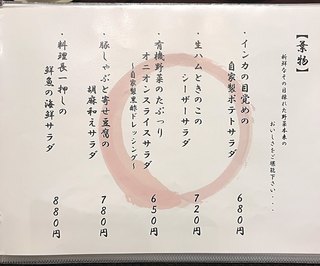 【葉物】
新鮮なその日採れた野菜本来の
おいしさをご堪能下さい・・・・
・インカの目覚めの
自家製ポテトサラダ
680円
・生ハムときのこの
シーザーサラダ
720円
・有機野菜のたっぷり
オニオンスライスサラダ
～自家製黒酢ドレッシング～
650円
・豚しゃぶと寄せ豆腐の
胡麻和えサラダ
780円
・料理長一押しの
鮮魚の海鮮サラダ
880円